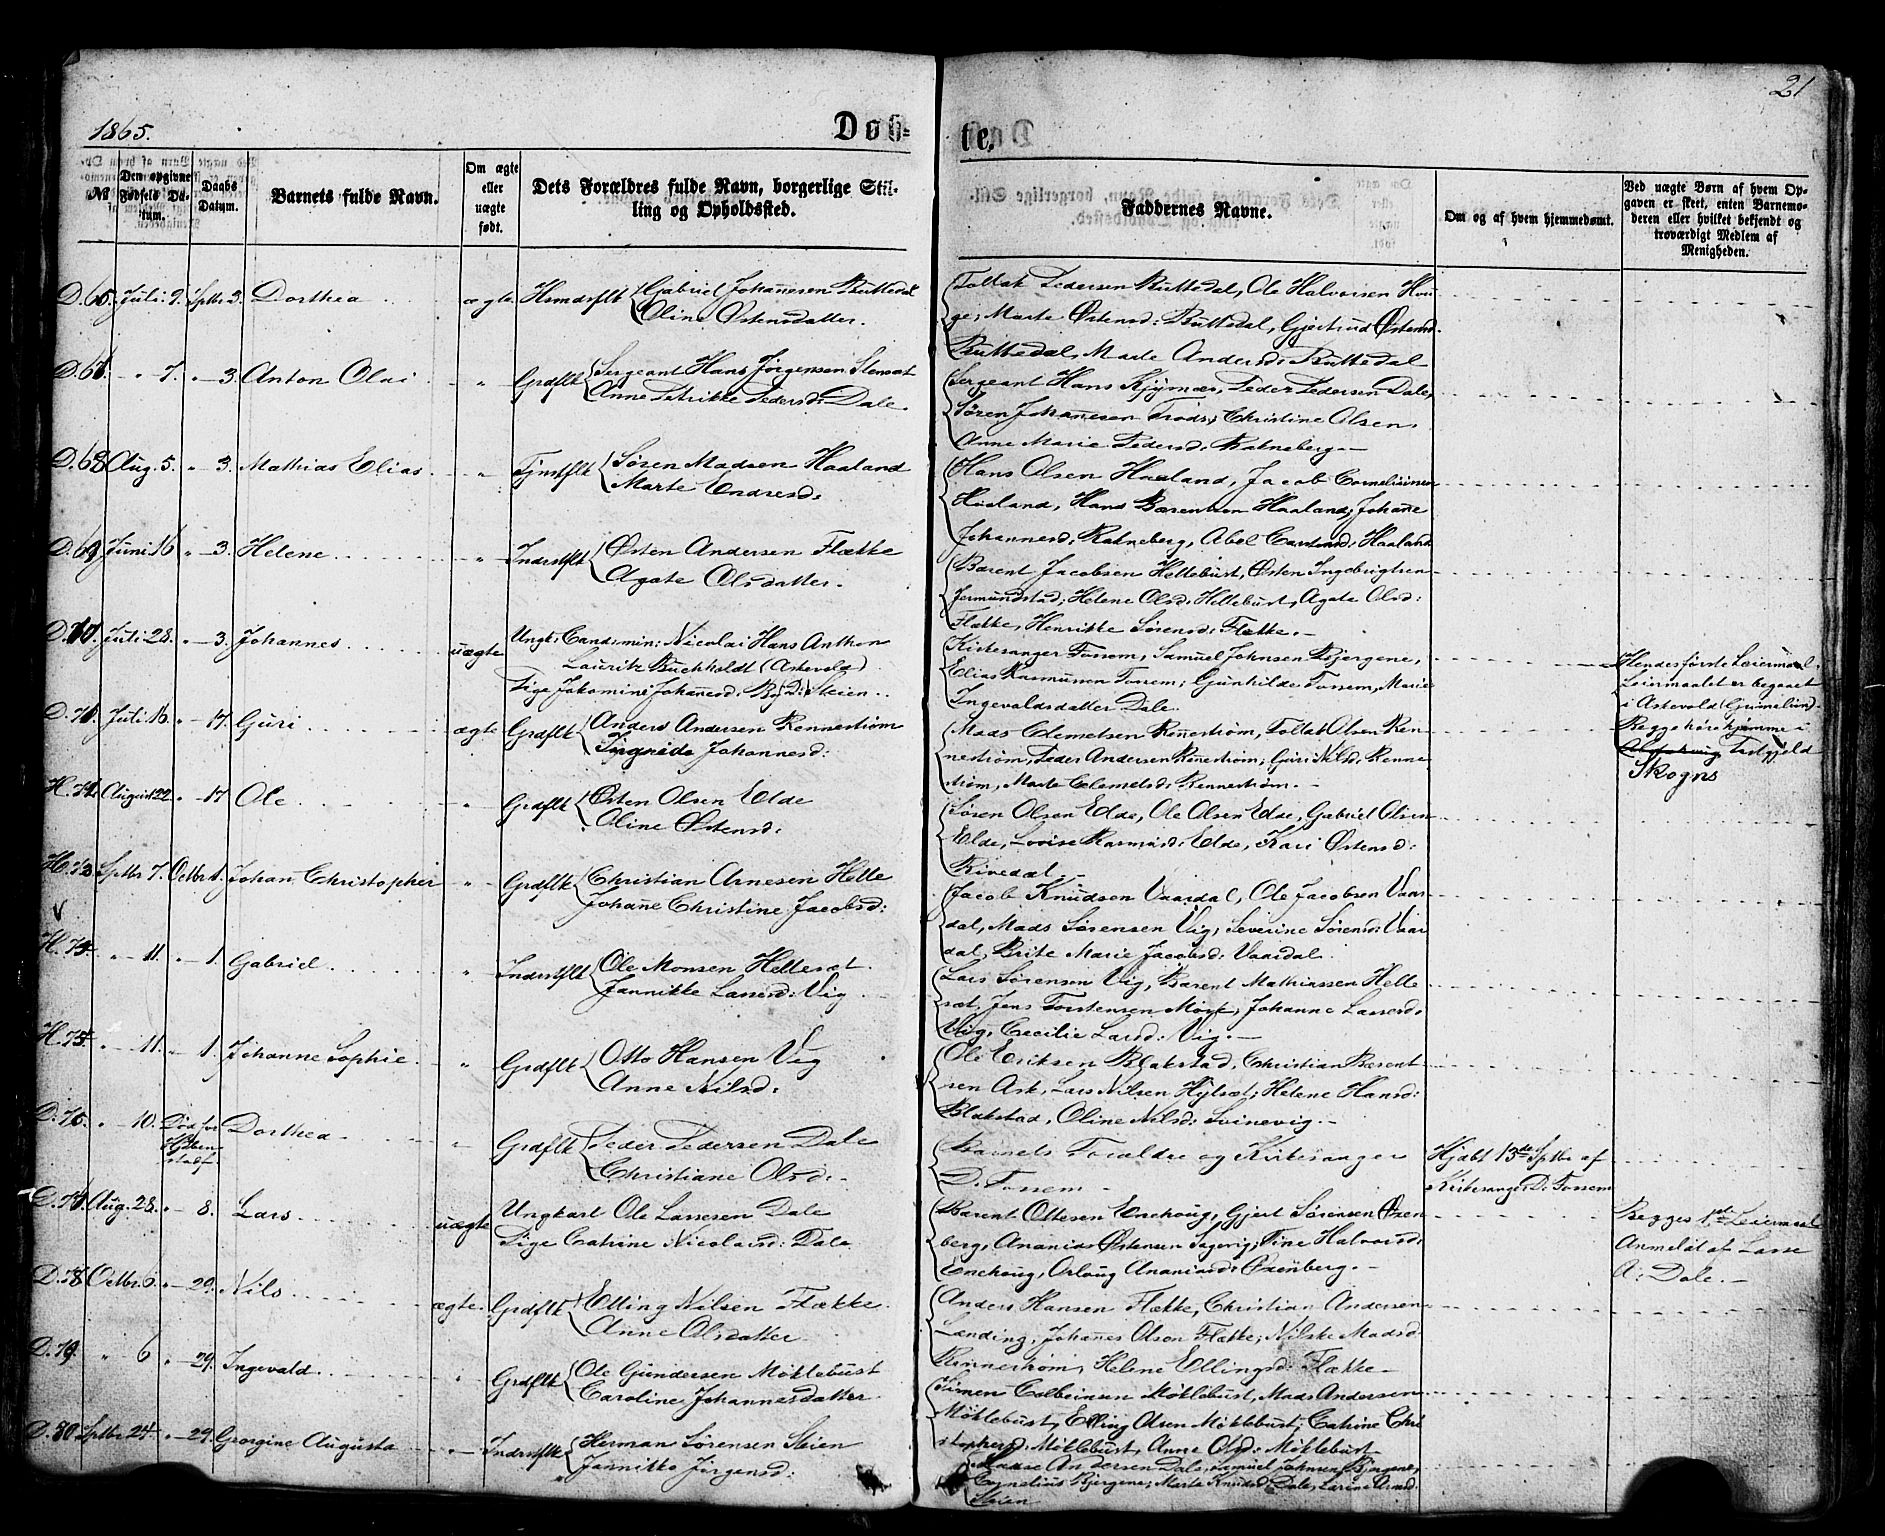 21
1865.
Døb-
te.
№
Den opgivne Fødsels Datum.
Daabs Datum.
Barnets fulde Navn.
Om ægte eller uægte født.
Dets Forældres fulde Navn, borgerlige Stilling og Opholdssted.
Faddernes Navne.
Om og af hvem hjemmedøbt.
Ved uægte Børn af hvem Opgaven er skeet, enten Barnemoderen eller hvilket bekjendt og troværdigt Medlem af Menigheden.
D. 65. Juli 9. Sptbr 3. Dorthea ægte Hsmdsflk Gabriel Johannesen Buttedal
Oline Østensdatter.
Tollak Pedersen Buttedal, Ole Halvorsen Hau-
ge; Marte Østensd: Buttedal, Gjertrud Østensd.
Buttedal, Marte Andersd: Buttedal
D. 66. " 7. " 3. Anton Olai " Grdflk Sergeant Hans Jørgensen Stenset
Anne Petrikke Pedersd: Dale.
Sergeant Hans Peder Pedersen Dale,
Søren Johannesen Christine Olsen,
Anne Marie Pedersd: Rakneberg.
D. 68 Aug. 5. " 3. Mathias Elias " Søren Madsen Haaland
Marte Endresd:
Hans Olsen Haaland, Jacob Corneliusen
Haaland, Hans Barentsen Haaland; Johanne
Johannesd. Rakneberg, Abel Haaland
D. 69 Juni 16 " 3. Helene " Indrstflk Østen Andersen Flække
Agate Olsdatter.
Barent Jacobsen Hellebust, Østen Ingebrigtsen
Jermundstad; Helene Olsd: Hellebust, Agate Olsd:
Flække, Henrikke Sørensd: Flække.
D. 70. Juli 28. " 3. Johannes uægte Ungk: Cand: min: Nicolai Hans Anthon
Lauritz Buchholdt (Askevold)
Pige Jakomine Johannesd: Steien.
Kirkesanger Fossem, Samuel Johnsen Bjergene,
Elias Rasmussen Fossem; Gunhilde Fossem, Marie
Ingevaldsdatter Dale.
Hendes første Leiermaal.
Leiermaalet er begaaet
i Askevold (Grimelund).
Begge høre hjemme i
Præstgjeld
Skogns
D. 71. Juli 16. " 17. Guri ægte Grdflk Anders Andersen Rennestrøm
Johannesd:
Mads Clemetsen Rennestrøm, Tollak Olsen Ren-
nestrøm, Peder Andersen Rennestrøm; Guri Nilsd. Renne-
strøm, Marte Clemetsd: Rennestrøm.
H. 72. August 22 " 17 Ole " Grdflk Østen Olsen Elde
Oline Østensd:
Søren Olsen Elde, Ole Olsen Elde, Gabriel Olsen
Elde, Lovise Rasmusd: Elde, Kari Østensd:
Rivedal.
H. 73 Sptbr 7. Octbr 1. Johan Christopher " Grdflk Christian Arnesen Helle
Johanne Christine Jacobsd:
Jacob Knudsen Vaardal, Ole Jacobsen Vaar-
dal, Mads Sørensen Vig; Severine Sørensd: Vaar-
dal, Brite Marie Jacobsd: Vaardal.
H. 74 " 11. " 1. Gabriel " Indrstflk Ole Monsen Hellesæt
Jannikke Lassesd: Vig
Lars Sørensen Vig, Barent Mathiassen Helle-
sæt, Jens Torstensen Mørk; Johanne Lassesd:
Vig, Cecilie Larsd: Vig.
H. 75 " 11. " 1. Johanne Sophie " Grdflk Otto Hansen Vig
Anne Nilsd:
Ole Eriksen Blakstad, Christian Barent-
sen Ask, Lars Nilsen Hylsæt; Helene Hansd:
Blakstad, Oline Nilsd: Svinevig.
D. 76. " 10. Død før Dorthea " Grdflk Peder Pedersen Dale
Christiane Olsd:
Barnets Forældre og Kirkesanger
D. Fossem
Hjdbt 13de Sptbr af
Kirkesanger D: Fossem
D. 77 Aug. 28. " 8. Lars uægte Ungkarl Ole Lassesen Dale
Pige Catrine Nicolaisd: Dale
Barent Ottesen Enehoug, Gjert Sørensen Øxen-
berg, Ananias Østensen Sagevig; Tine Halvorsd:
Enehoug, Orloug Ananiasd: Øxenberg.
Begges 1ste Leiermaal
Anmeldt af Lasse
A: Dale.
D. 78 Octbr. 6. " 29. Nils ægte Grdflk Elling Nilsen Flække
Anne Olsdatter
Anders Hansen Flække, Christian Andersen
Lending, Johannes Olsen Flække; Nilske Madsd.
Rennestrøm, Helene Ellingsd: Flække
D. 79. " 6 " 29. Ingevald " Grdflk Ole Gundersen Møklebust
Caroline Johannesdatter
Simen Colbeinsen Møklebust, Mads Andersen
Møklebust, Elling Olsen Møklebust; Catrine Chri-
stophersd: Møklebust, Anne Olsd: Møklebust
D. 80 Sptbr 24. " 29. Georgine Augusta " Indrstflk Herman Sørensen Steien
Jannikke Jørgensd:
Lasse Andersen Dale, Samuel Johnsen Bjergene,
Cornelius Bjergene; Marte Knudsd Dale,
Steien